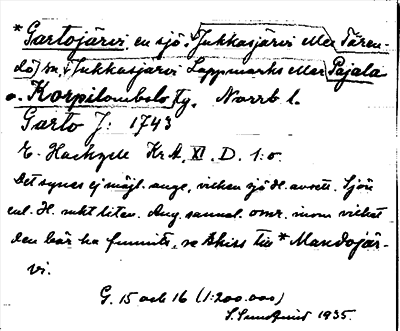 *Gartojärvi, en sjö i Jukkasjärvi eller Tären-
dö) sn, i Jukkasjärvi Lappmarks eller Pajala
o. Korpilombolo tg. Norrb l.
Garto J: 1743
E. Hackzell Kr.A. XI. D. 1:o.
Det synes ej möjl. ange, vilken sjö H. avsett. Sjön
enl. H. rukt liten. Ang. samal. omr. inom vilket
den bör ha funnits, se skiss till *Mandojär-
vi.
G. 15 och 16 (1:200.000)
S. Sundqvist 1935.